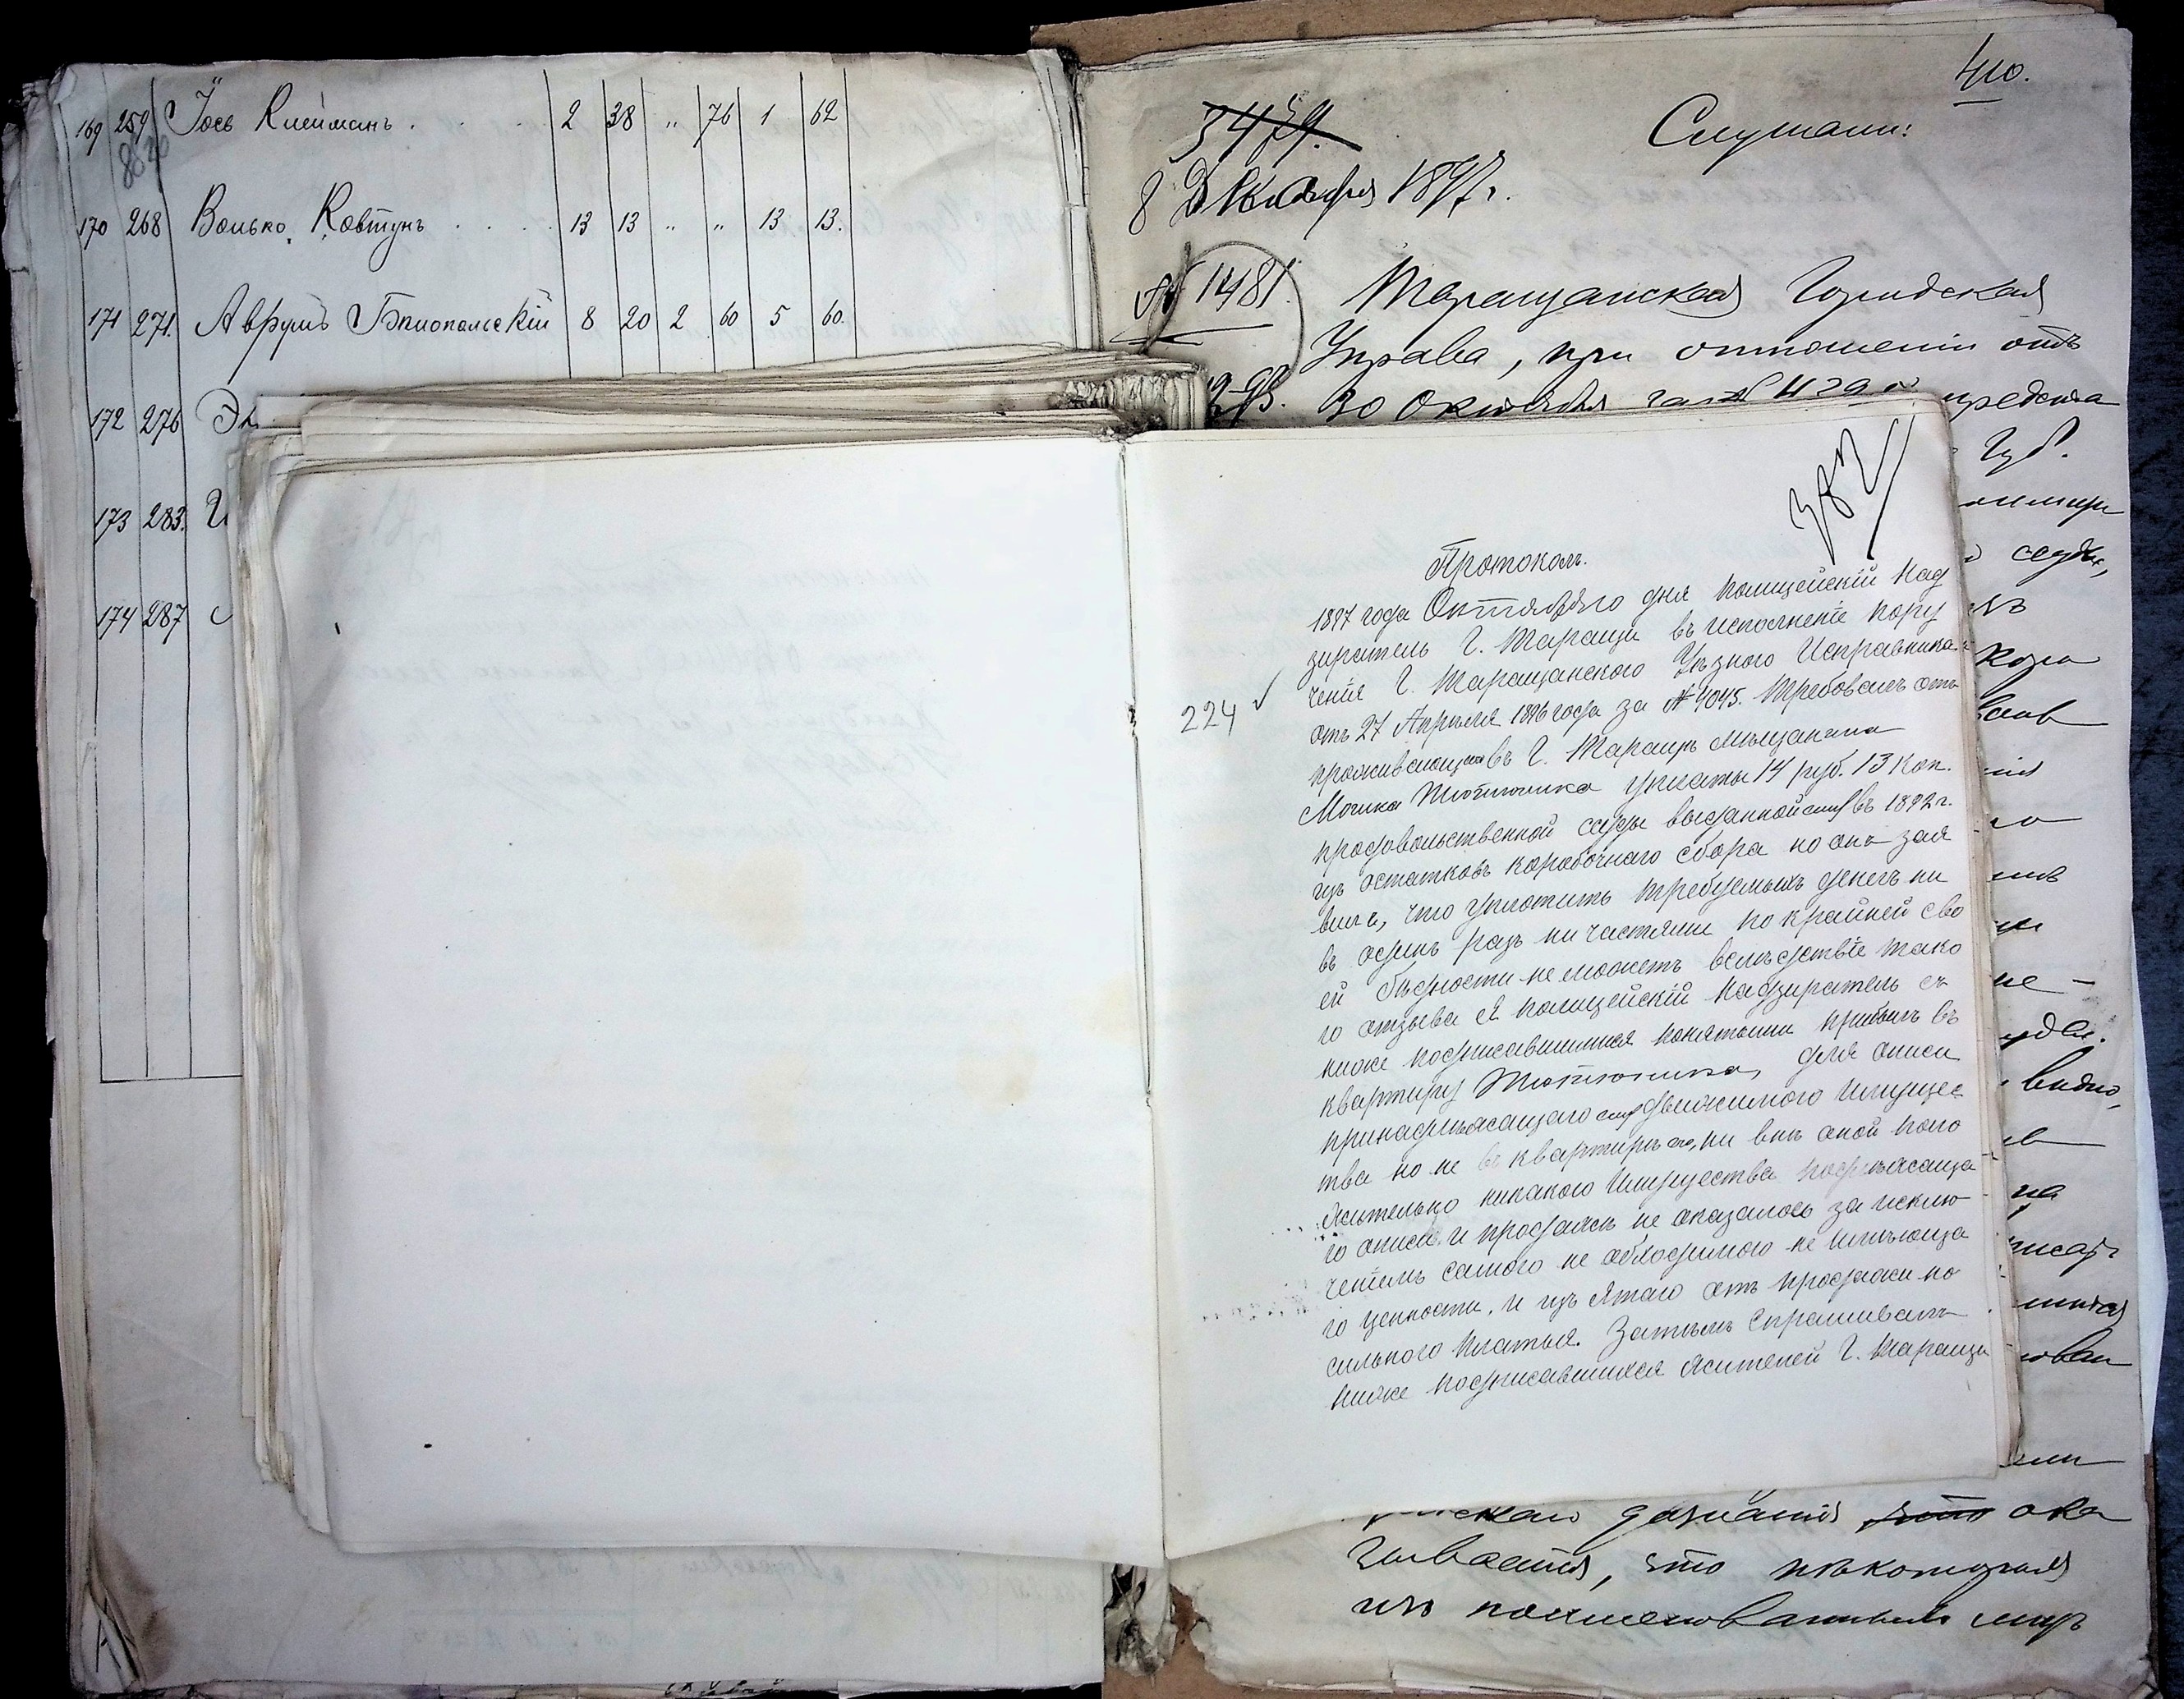 169 259 Іось Клейманъ . . . 2 38 „ 76 1 62
170 268 Волько Ковтунъ . . . . 13 13 „ „ 13 13.
171 271. Аврумъ Бѣлопольскій 8 20 2 60 5 60.
172 276
173 283.
174 287
410.
3479.
Слушали:
8 Декабря 1897 г.
№ 1481. Таращанская Городская
Управа, при отношеніи отъ
30 Октября за № 4290 представ
Губ.
ссудъ,
видно,
дознанія что ока
зывается, что нѣкоторыя
изъ поименованныхъ лицъ
382
Протоколъ.
1897 года Октября 10 дня Полицейскій Над
зиратель Г. Таращи въ исполненіе пору
ченія Г. Таращанскаго Уѣзного Исправника
отъ 27 Апрѣля 1896 года за № 4045. Требовалъ отъ
224 ✓
проживающаго въ Г. Таращѣ мѣщанина
Мошка Тютюника уплаты 14 руб. 13 коп.
продовольственной ссуды выданной ему въ 1892 г.
изъ остатковъ коробочнаго сбора но онъ зая
вилъ, что уплотить требуемыхъ денегъ ни
въ одинъ разъ ни частями по крайней сво
ей бѣдности не можетъ вслѣдствіе тако
го отзыва Я Полицейскій Надзиратель съ
ниже подписавшимися понятыми прибылъ въ
квартиру Тютюника, для описи
принадлѣжащаго ему движимого Имущес
тва но не въ квартирѣ его, ни внѣ оной поло
жительно никакого Имущества подлѣжаща
го описи и продажѣ не оказалось за исклю
ченіемъ самого не обходимого не имѣюща
го ценности, и изъ ятаго отъ продажи но
сильного платья. Затѣмъ Спрашивалъ
ниже подписавшихся жителей Г. Таращи